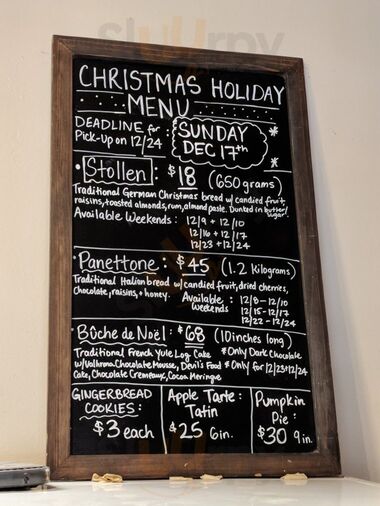 Slurrpy
CHRISTMAS HOLIDAY
MENU
DEADLINE for
Pick-up on 12/24
SUNDAY
DEC 17th
• Stollen : $18 (650 grams)
Traditional German Christmas bread w/ candied fruit,
raisins, toasted almonds, rum, almond paste. Dunked in butter/
sugar
Available Weekends : 12/9 + 12/10
12/16 + 12/17
12/23 + 12/24
• Panettone : $45 (1.2 Kilograms)
Traditional Italian bread w/ candied fruit, dried cherries,
chocolate, raisins, + honey.
Available Weekends : 12/8 - 12/10
12/15 - 12/17
12/22 - 12/24
• Bûche de Noël : $68 (10 inches long)
Traditional French Yule Log Cake *Only Dark Chocolate
w/ Valhrona Chocolate Mousse, Devil's Food *Only for 12/23+12/24
Cake, Chocolate Cremeaux, Cocoa Meringue
GINGERBREAD
COOKIES :
$3 each
Apple Tarte :
Tatin
$25 6in.
Pumpkin
Pie :
$30 9in.